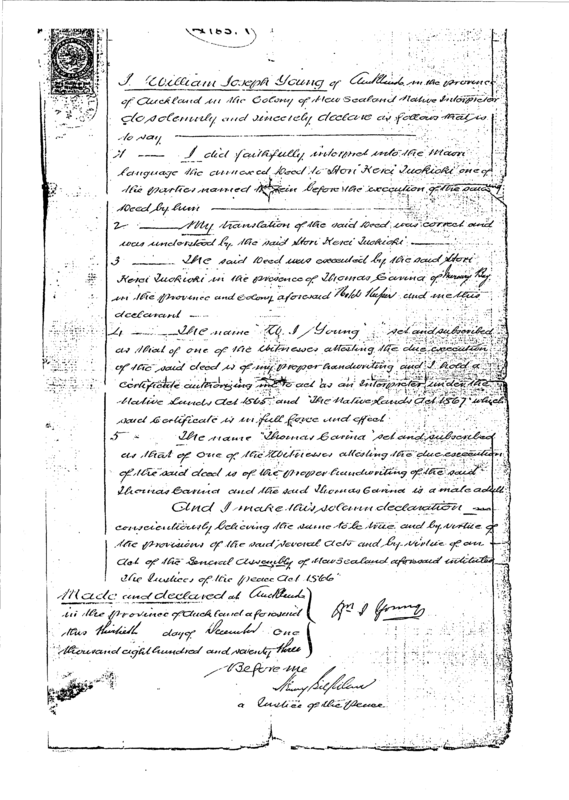 I William Joseph Young of Auckland in the province
of Auckland in the Colony of New Zealand Native Interpreter
do solemnly and sincerely declare as follows that is
to say
1 I did faithfully interpret into the Maori
language the annexed Deed to Hori Kerei Tuokioki one of
the parties named therein before the execution of the said
Deed by him
2 My translation of the said Deed was correct and
was understood by the said Hori Kerei Tuokioki
3 The said Deed was executed by the said Hori
Kerei Tuokioki in the presence of Thomas Carina of Bay
in the Province and Colony aforesaid Hotel Keeper and me this
declarant
4 The name "Wm. J. Young" set and subscribed
as that of one of the Witnesses attesting the due execution
of the said deed is of my proper handwriting and I hold a
certificate authorizing me to act as an Interpreter under the
Native Lands Act 1865 and "The Native Lands Act 1867" which
said Certificate is in full force and effect
5 The name "Thomas Carina" set and subscribed
as that of one of the Witnesses attesting the due execution
of the said deed is of the proper handwriting of the said
Thomas Carina and the said Thomas Carina is a male adult
And I make this solemn declaration
conscientiously believing the same to be true and by virtue of
the provisions of the said several Acts and by virtue of an
Act of the General Assembly of New Zealand aforesaid intituled
The Justices of the peace Act 1866
Made and declared at Auckland
in the province of Auckland aforesaid
this thirtieth day of December One
thousand eight hundred and seventy three
Wm J Young
Before me
a Justice of the Peace